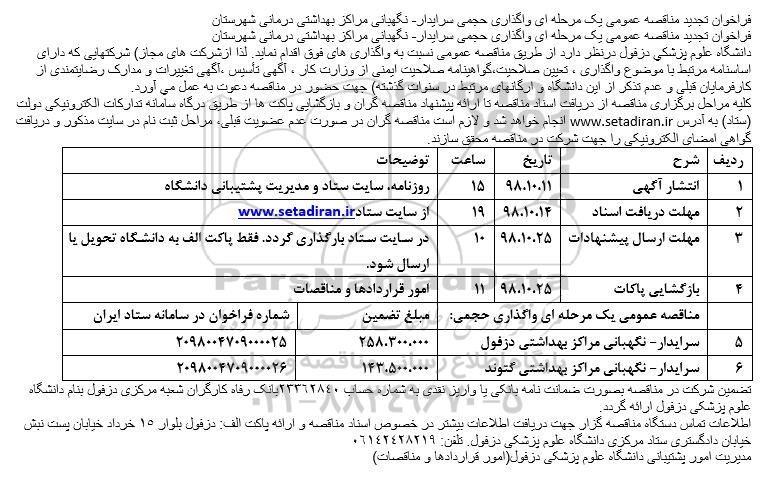 فراخوان تجدید مناقصه عمومی یک مرحله ای واگذاری حجمی سرایدار- نگهبانی مراکز بهداشتی درمانی شهرستان
فراخوان تجدید مناقصه عمومی یک مرحله ای واگذاری حجمی سرایدار- نگهبانی مراکز بهداشتی درمانی شهرستان
دانشگاه علوم پزشکي دزفول درنظر دارد از طریق مناقصه عمومی نسبت به واگذاری های فوق اقدام نماید. لذا ازشرکت های مجاز) شرکتهایی که دارای
اساسنامه مرتبط با موضوع واگذاری ، تعیین صلاحیت،گواهینامه صلاحیت ایمنی از وزارت کار ، آگهی تأسیس ،آگهی تغییرات و مدارک رضایتمندی از
کارفرمایان قبلی و عدم تذکر از این دانشگاه و ارگانهای مرتبط در سنوات گذشته) جهت حضور در مناقصه دعوت به عمل می آورد.
کلیه مراحل برگزاری مناقصه از دریافت اسناد مناقصه تا ارائه پیشنهاد مناقصه گران و بازگشایی پاکت ها از طریق درگاه سامانه تدارکات الکترونیکی دولت
(ستاد) به آدرس www.setadiran.ir انجام خواهد شد و لازم است مناقصه گران در صورت عدم عضویت قبلی، مراحل ثبت نام در سایت مذکور و دریافت
گواهی امضای الکترونیکی را جهت شرکت در مناقصه محقق سازند.
ردیف شرح تاریخ ساعت توضیحات
۱ انتشار آگهی ۹۸.۱۰.۱۱ ۱۵ روزنامه، سایت ستاد و مدیریت پشتیبانی دانشگاه
۲ مهلت دریافت اسناد ۹۸.۱۰.۱۴ ۱۹ از سایت ستاد www.setadiran.ir
۳ مهلت ارسال پیشنهادات ۹۸.۱۰.۲۵ ۱۰ در سایت ستاد بارگذاری گردد. فقط پاکت الف به دانشگاه تحویل یا
ارسال شود.
۴ بازگشایی پاکات ۹۸.۱۰.۲۵ ۱۱ امور قراردادها و مناقصات
مناقصه عمومی یک مرحله ای واگذاری حجمی: مبلغ تضمین شماره فراخوان در سامانه ستاد ایران
۵ سرایدار- نگهبانی مراکز بهداشتی دزفول ۲۵۸.۳۰۰.۰۰۰ ۲۰۹۸۰۰۴۷۰۹۰۰۰۰۲۵
۶ سرایدار- نگهبانی مراکز بهداشتی گتوند ۱۴۳.۵۰۰.۰۰۰ ۲۰۹۸۰۰۴۷۰۹۰۰۰۰۲۶
تضمین شرکت در مناقصه بصورت ضمانت نامه بانکی یا واریز نقدی به شماره حساب ۲۳۳۶۲۸۴۰بانک رفاه کارگران شعبه مرکزی دزفول بنام دانشگاه
علوم پزشکی دزفول ارائه گردد.
اطلاعات تماس دستگاه مناقصه گزار جهت دریافت اطلاعات بیشتر در خصوص اسناد مناقصه و ارائه پاکت الف: دزفول بلوار ۱۵ خرداد خیابان پست نبش
خیابان دادگستری ستاد مرکزی دانشگاه علوم پزشکی دزفول. تلفن: ۰۶۱۴۲۴۲۸۲۱۹
مدیریت امور پشتیبانی دانشگاه علوم پزشکی دزفول(امور قراردادها و مناقصات)
ParsNamadData
۰۲۱-۸۸۳۴۹۶۷۰-۵